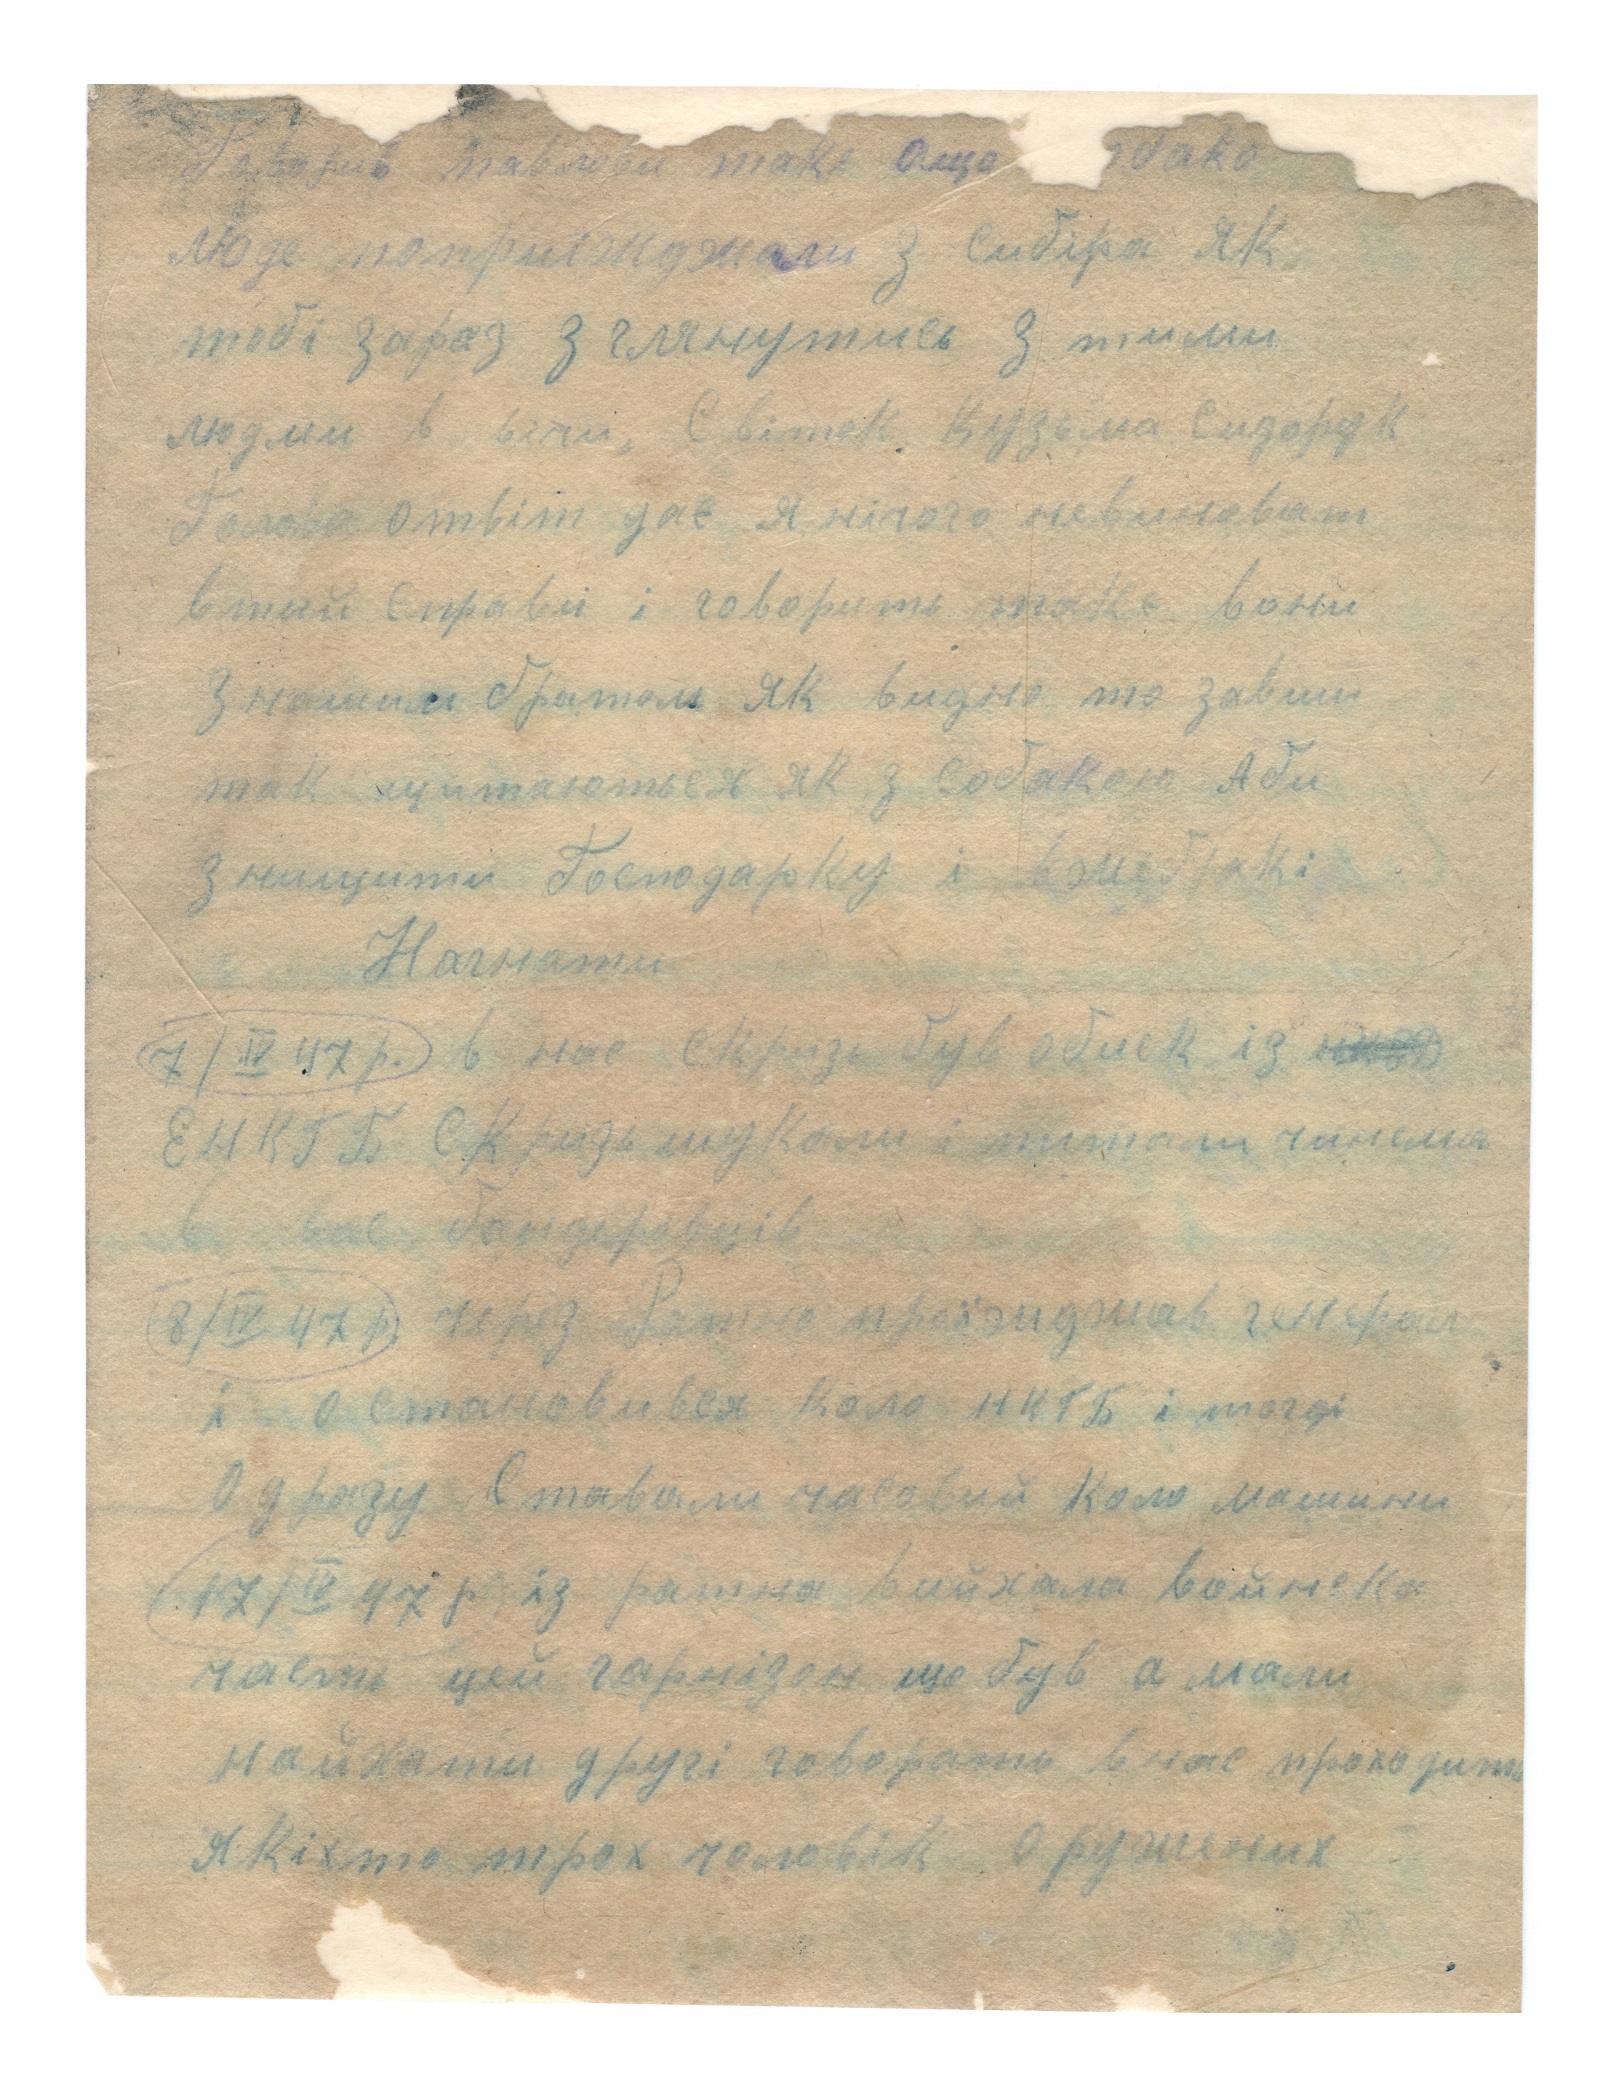 Говорив Павлови таке Още обака
люде поприїжджали з Сибіра Як
тобі зараз зглянутись з тими
людми в вічи, Світок Кузьма Сидорук
Голова отвіт дає Я нічого невиноват
втий справи і говорить таке вони
знашим братом Як видно то завши
так щитаються як з собакою Аби
знищити Господарку і вжебракі
Нагнати
7/IV 47 р. в нас скризь був обиск із
ЕНКГБ Скризь шукали і питали чинема
в нас бандеровців
8/IV 47 р через Ратно проїжджав генерал
і остановився коло НКГБ і тогді
Одразу Ставали часовий коло машини
17/IV 47 р із ратна вийхала войнска
часть цей гарнізон що був а мали
найхати другі говорать внас проходить
Якіхто трох чоловік Оружених